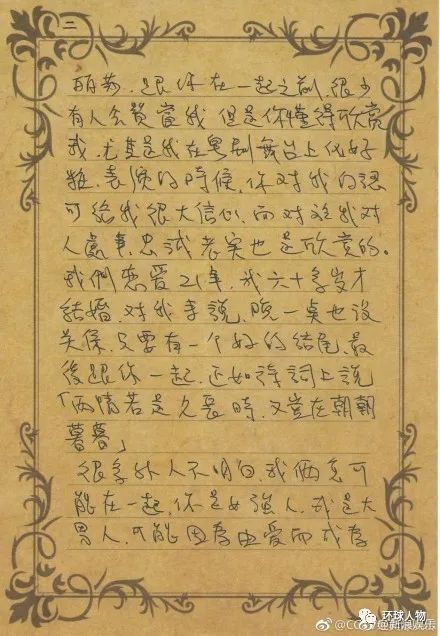 二
丽莎,跟你在一起之前,很少
有人会赞當我 但是你懂得欣赏
我,尤其是我在粤剧舞台上化好
妝,表演的時候,你对我的認
可给我很大信心,而对於我对
人處事,忠誠老实也是欣赏的。
我們恋爱21年,我六十多岁才
结婚,对我来説,晚一点也没
关係,只要有一个好的结尾,最
後跟你一起,正如诗詞上説
「两情若是久長時,又豈在朝朝
暮暮」
很多外人不明白,我俩怎可
能在一起,你是女強人,我是大
男人,只能因為由爱而成為
环球人物
@新浪娱乐